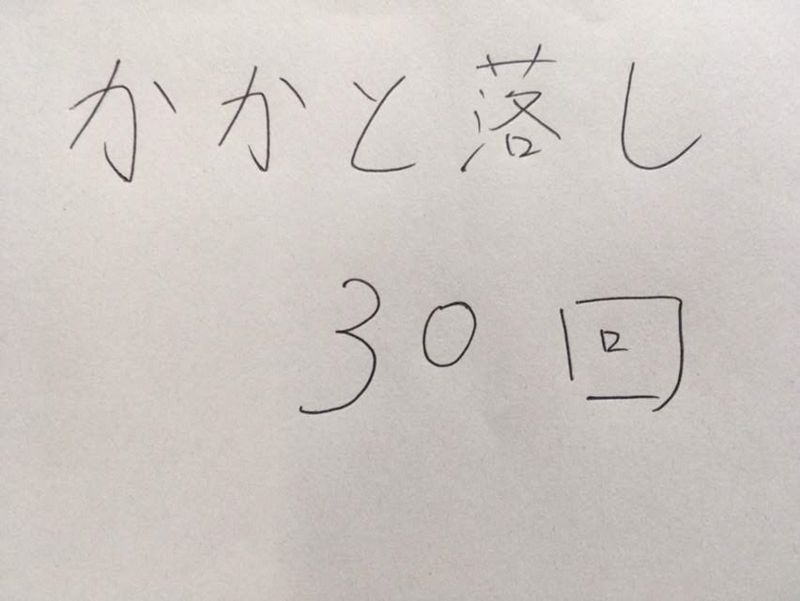 かかと落し
30回